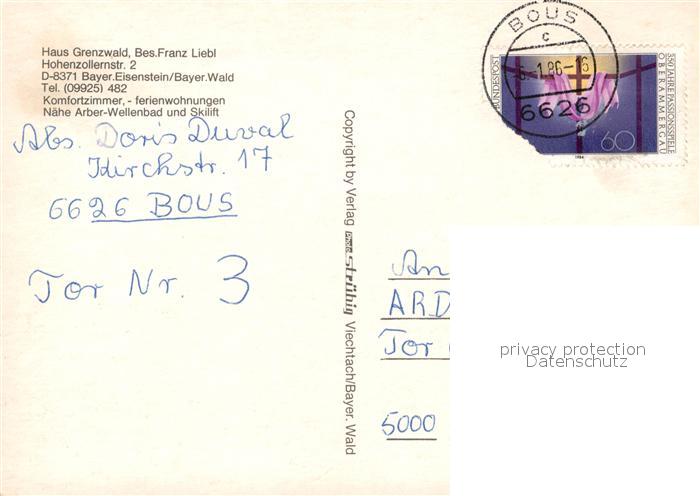 Haus Grenzwald, Bes.Franz Liebl
Hohenzollernstr. 2
D-8371 Bayer.Eisenstein/Bayer.Wald
Tel. (09925) 482
Komfortzimmer, - ferienwohnungen
Nähe Arber-Wellenbad und Skilift
Abs. Doris Duval
Kirchstr. 17
6626 BOUS
Tor Nr. 3
Copyright by Verlag Strühig Viechtach/Bayer. Wald
BOUS
c
1.86-16
6626
DEUTSCHE BUNDESPOST
350 JAHRE PASSIONSSPIELE
OBERAMMERGAU
60
1984
An
ARD
Tor
5000
privacy protection
Datenschutz